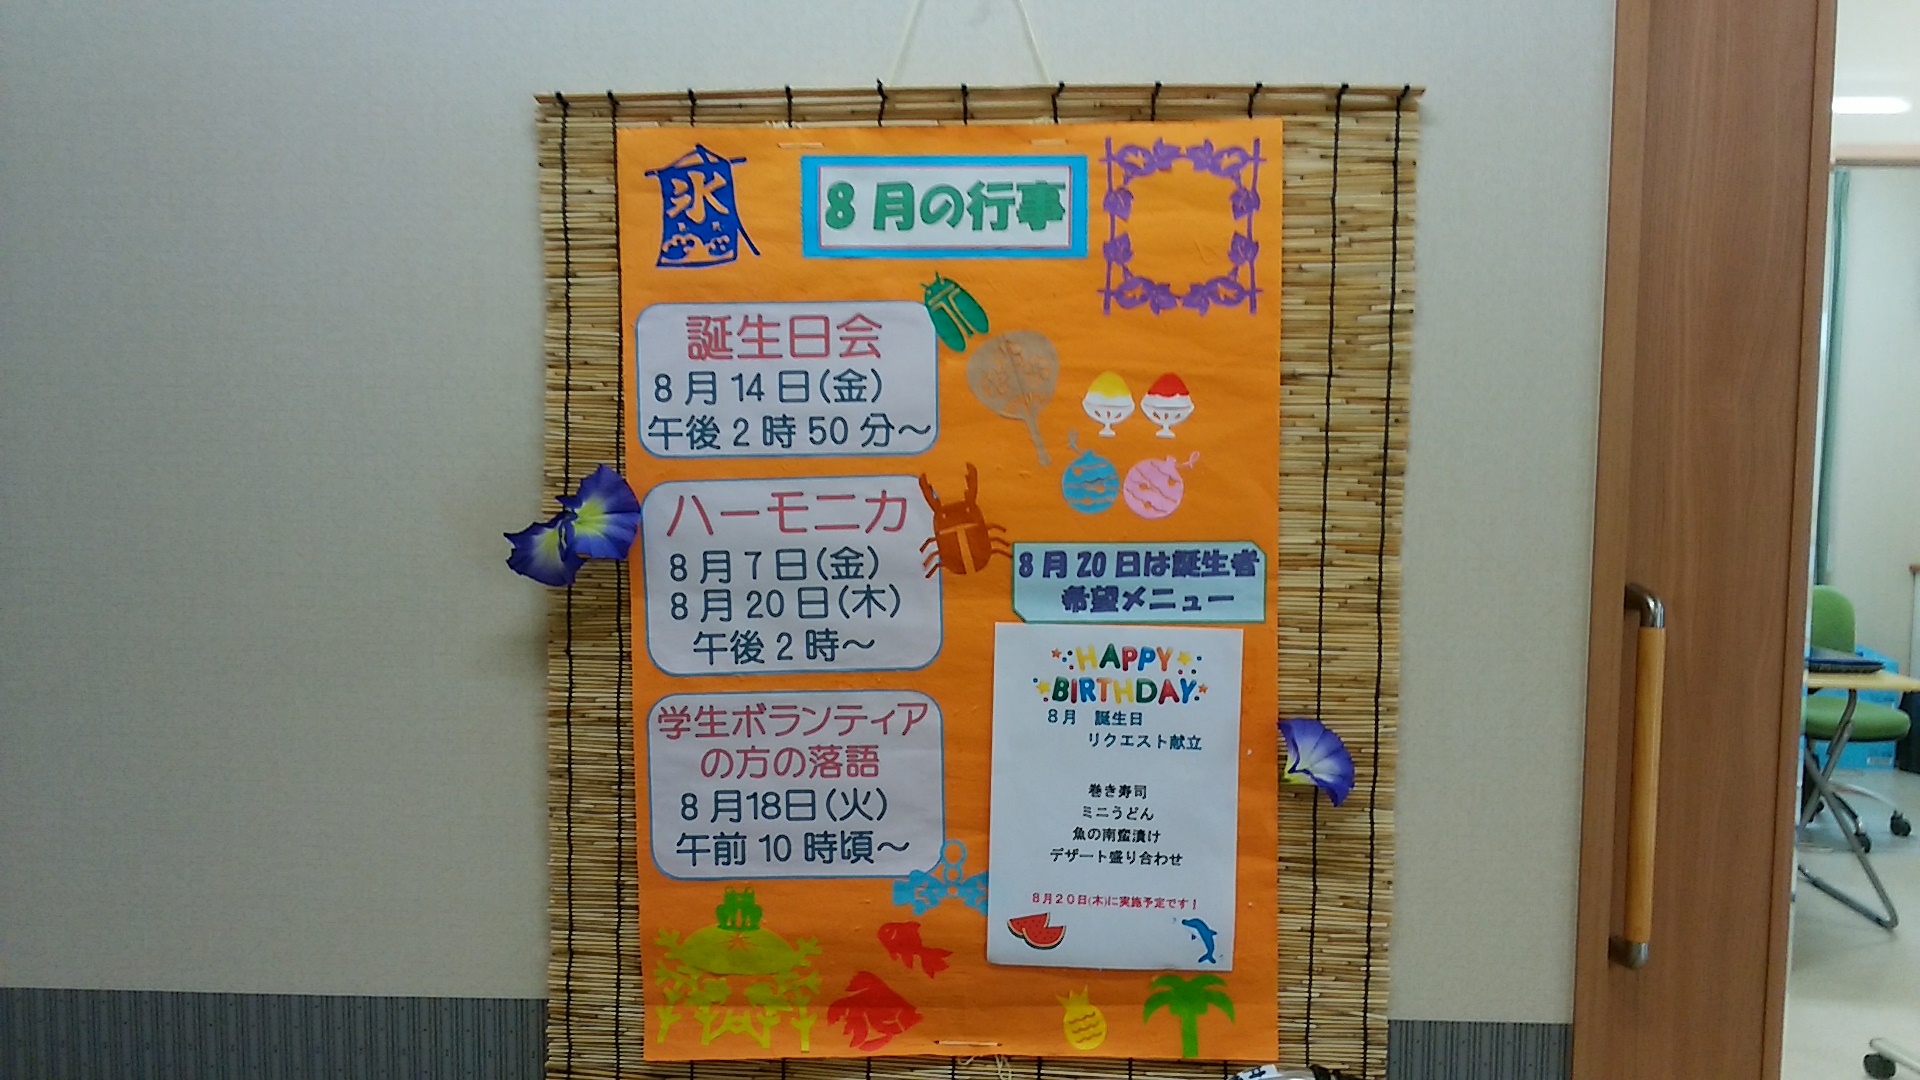 氷
8月の行事
誕生日会
8月14日(金)
午後2時50分～
ハーモニカ
8月7日(金)
8月20日(木)
午後2時～
学生ボランティア
の方の落語
8月18日(火)
午前10時頃～
8月20日は誕生者
希望メニュー
HAPPY
BIRTHDAY
8月 誕生日
リクエスト献立
巻き寿司
ミニうどん
魚の南蛮漬け
デザート盛り合わせ
8月20日(木)に実施予定です！